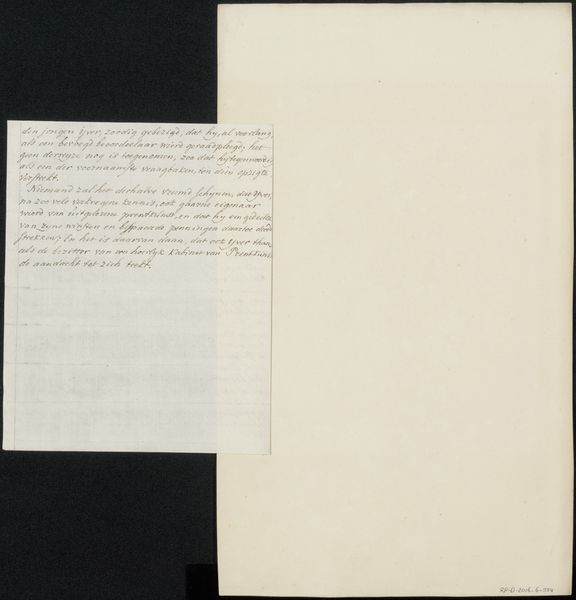 den jongen Yver, zoodig gebezigd, dat hy, al voorlang
als een bevoegd beoordeelaar wierd geraadpleegd, het
geen derwyze nog is toegenomen, zoo dat hy tegenwoordig
als een der voornaamste vraagbaken, ten dien opzigte
verstrekt.
Niemand zal het derhalve vreemd schynen, dat Yver,
na zoo vele verkregene kennis, ook gaarne eigenaar
wierd van uitgelezene prentkunst, en dat hy een gedeelte
van zyne winsten en bespaarde penningen daartoe deed
strekken; En het is daarvan daan, dat ook Yver thans
als de bezitter van een heerlyk Kabinet van Prentkunst
de aandacht tot zich trekt.
RP-D-2016-6-